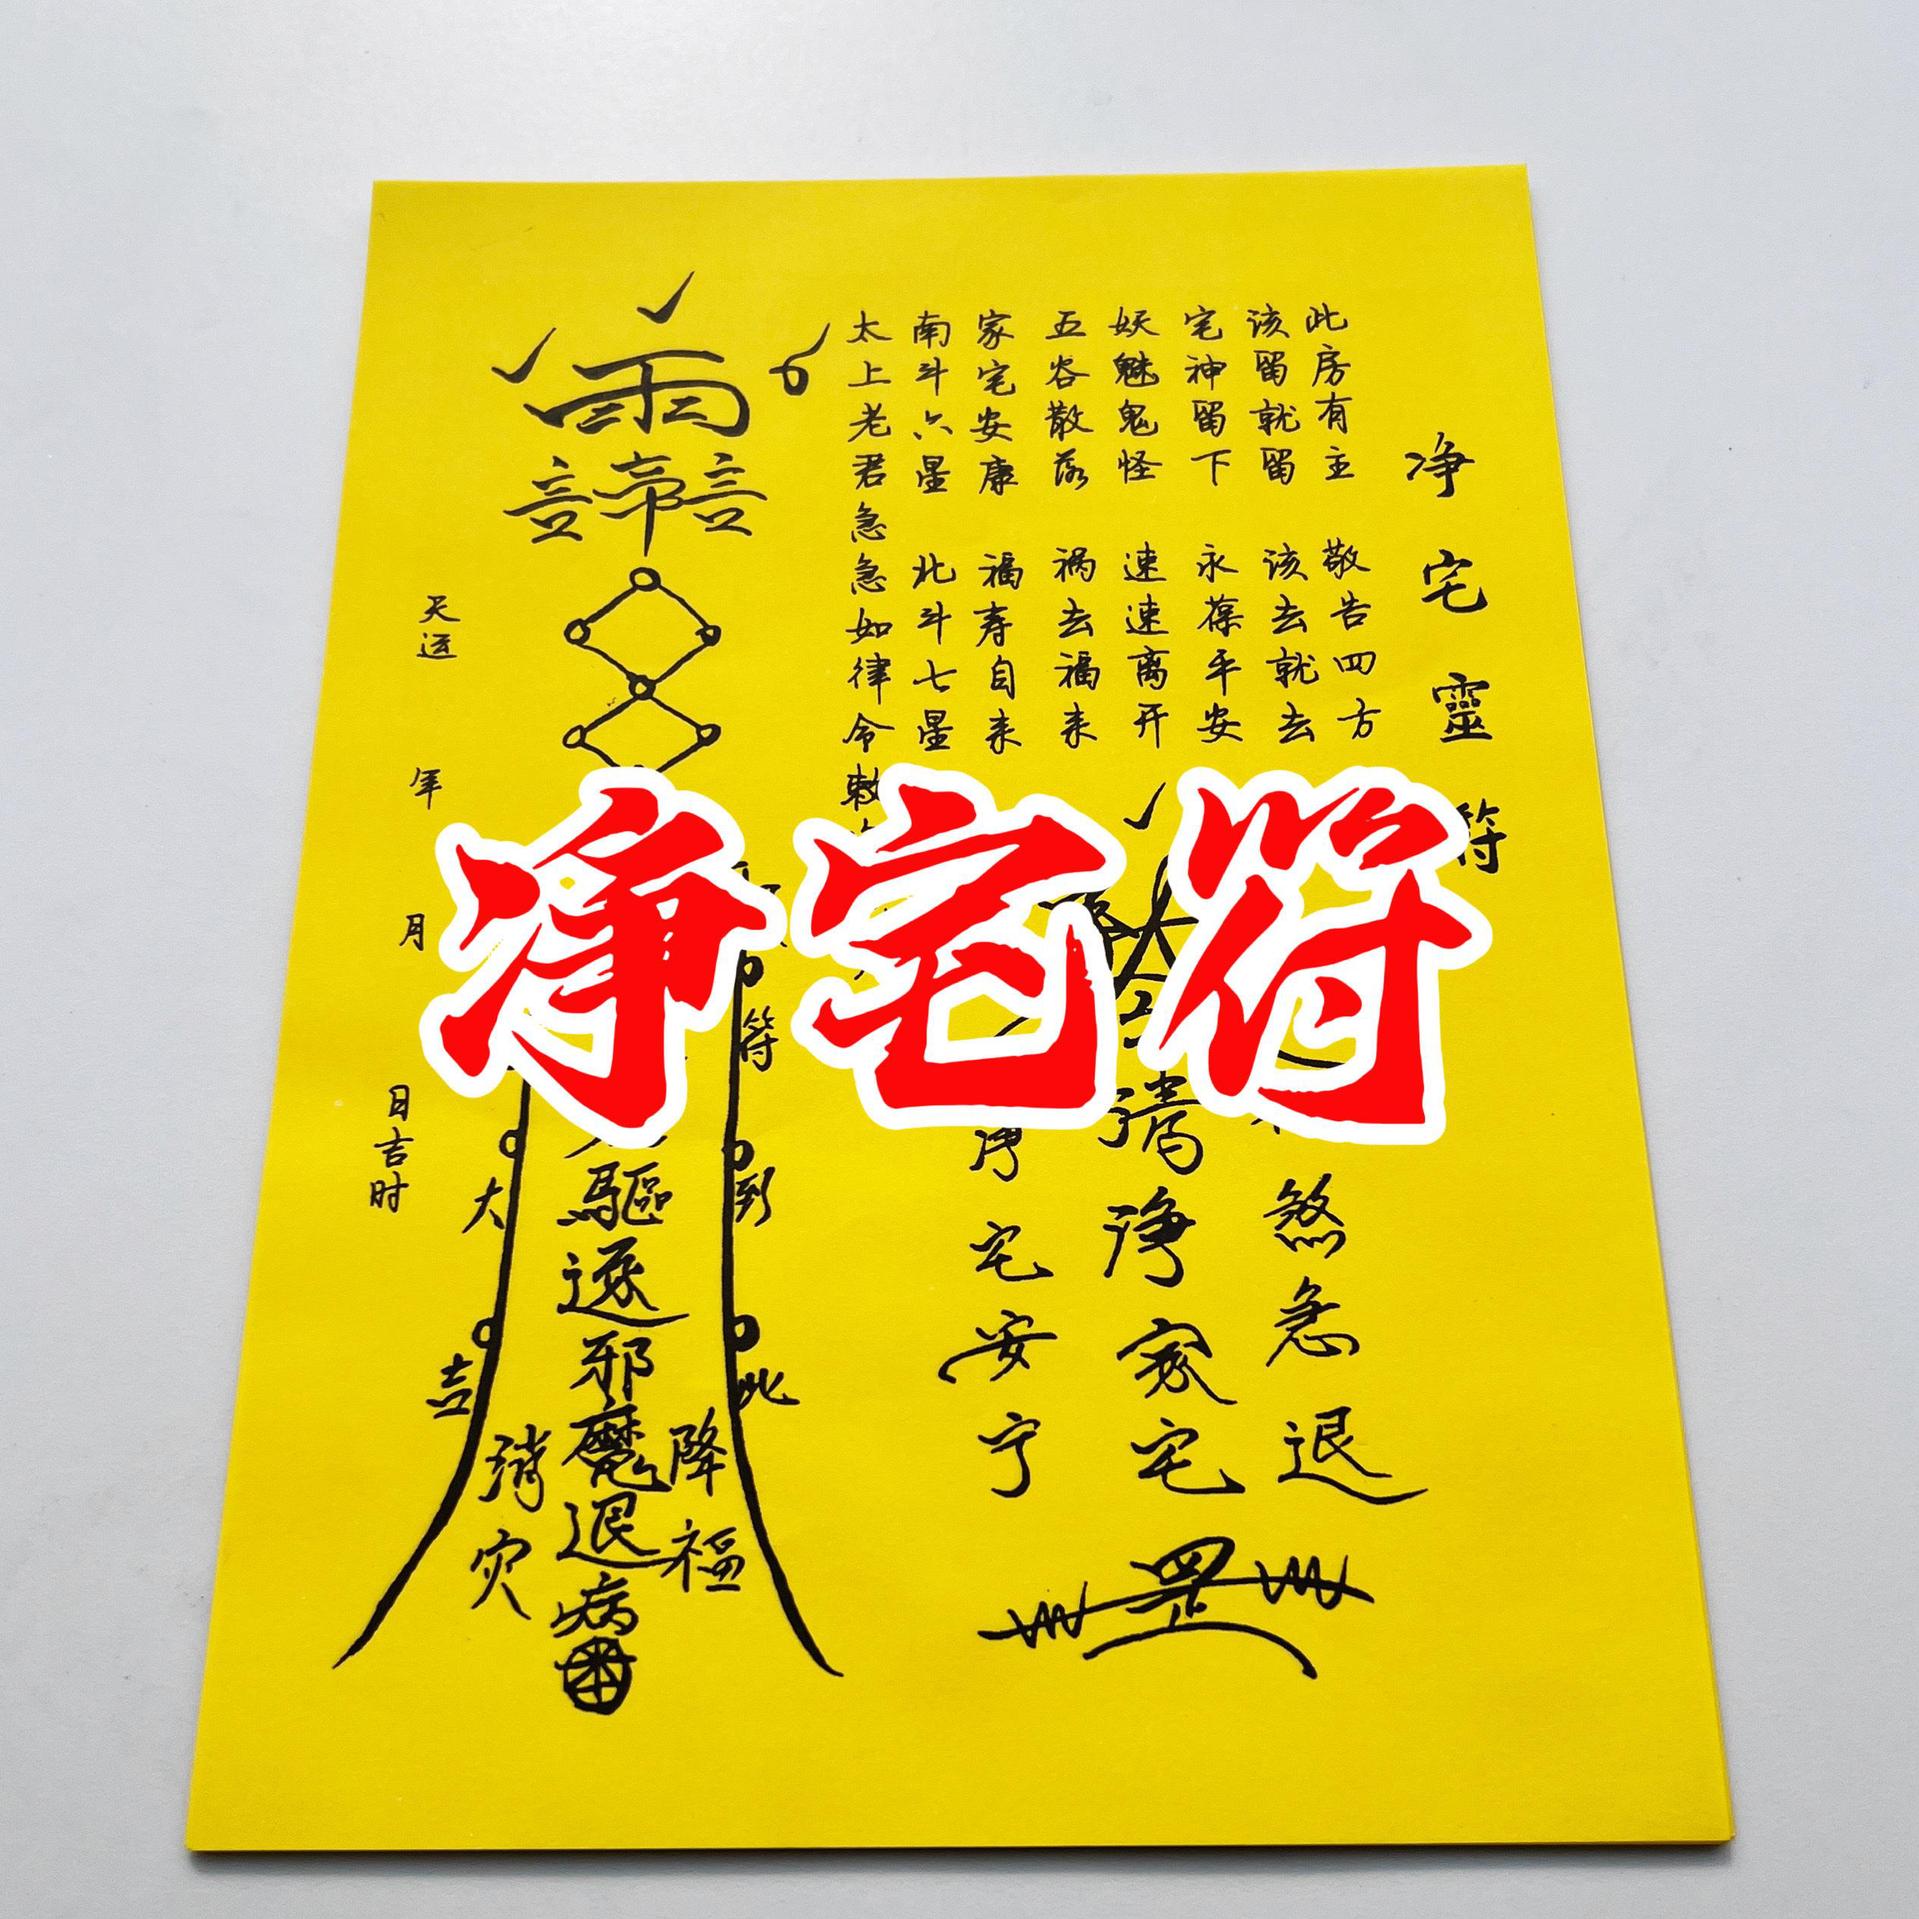 净宅灵符
此房有主 敬告四方
该留就留 该去就去
宅神留下 永葆平安
妖魅鬼怪 速速离开
五谷散落 祸去福来
家宅安康 福寿自来
南斗六星 北斗七星
太上老君急急如律令敕
净宅符
煞急退
清净家宅
净宅安宁
罡
雨
符到此
降福
驱逐邪魔退病
消灾
大吉
天运 年 月 日吉时